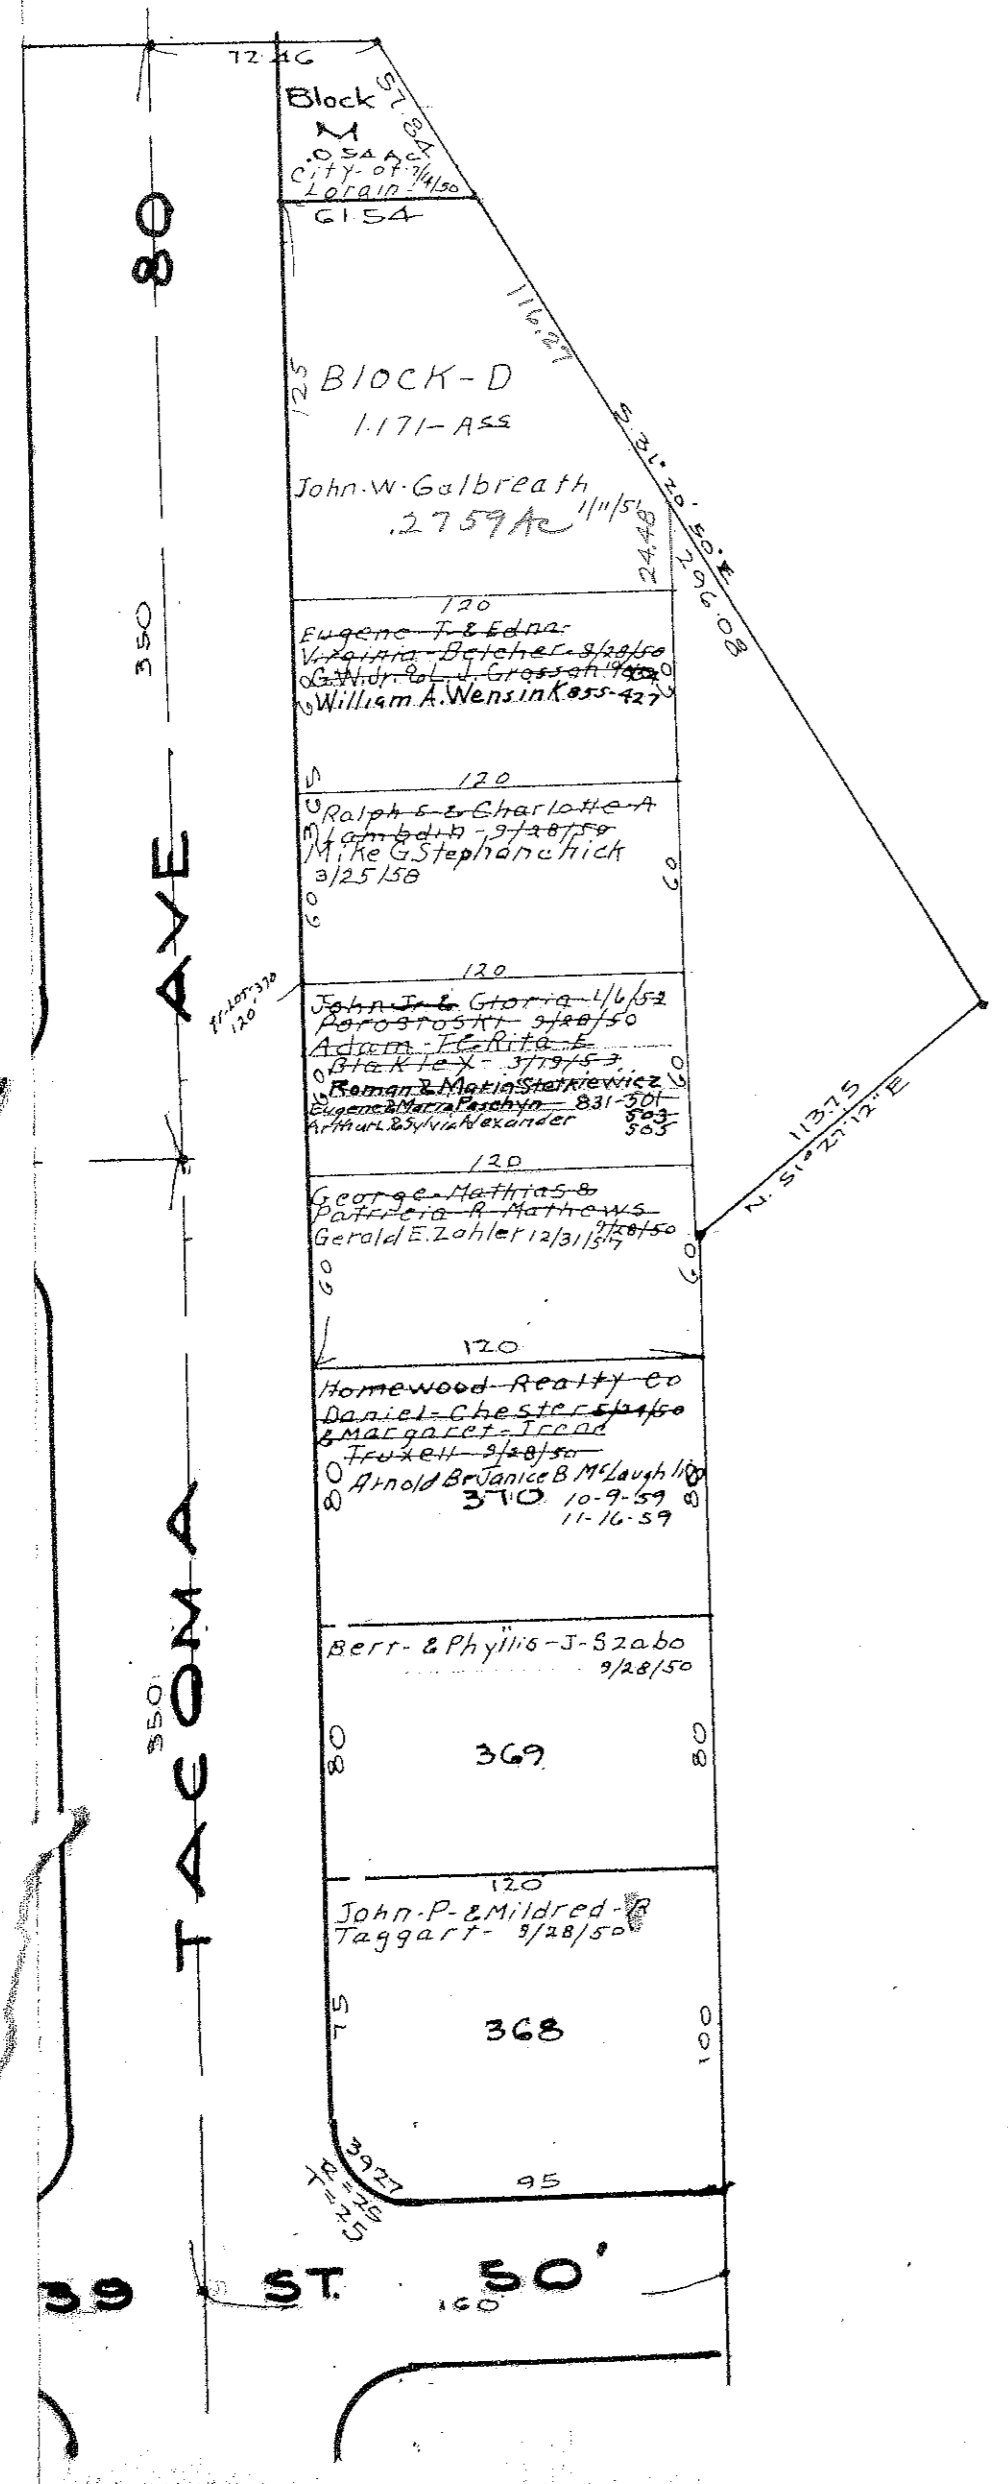 72.46
57.84
Block
M
.054 Ac
City-of 7/4/50
Lorain-
61.54
80
116.27
125
BLOCK-D
1.171-Ass
S. 31° 20' 50" E
John.W.Galbreath
.2759 Ac 1/11/51
24.48
296.08
350
120
Eugene T. & Edna-
Virginia-Belcher-9/28/50
G.W.Jr. & L.J. Grossah
William A. Wensink 855-427
60
365
120
Ralph S & Charlotte A
Lambdin - 9/28/50
Mike G Stephanchick
3/25/58
60
60
AVE
Fr. LOT-370
120'
120
John Jr & Gloria 1/6/52
Porostoski 9/28/50
Adam-F & Rita E
Blaklex - 3/19/53
Roman & Maria Statkiewicz
Eugene & Maria Paschyn 831-501
Arthur L & Sylvia Alexander 503
505
60
60
113.75
N. 51° 27' 12" E
120
George-Mathias &
Patricia R Mathews
Gerald E. Zahler 12/31/57 9/28/50
60
60
120
Homewood Realty Co
Daniel-Chester 5/24/50
& Margaret-Irene
Truxell 9/28/50
Arnold B & Janice B McLaughlin
370 10-9-59
11-16-59
80
80
TACOMA
350
Bert- & Phyllis-J-Szabo
9/28/50
80
369
80
120
John-P-& Mildred-R
Taggart- 9/28/50
75
368
100
39.27
R=25
T=25
95
39 ST. 50'
160